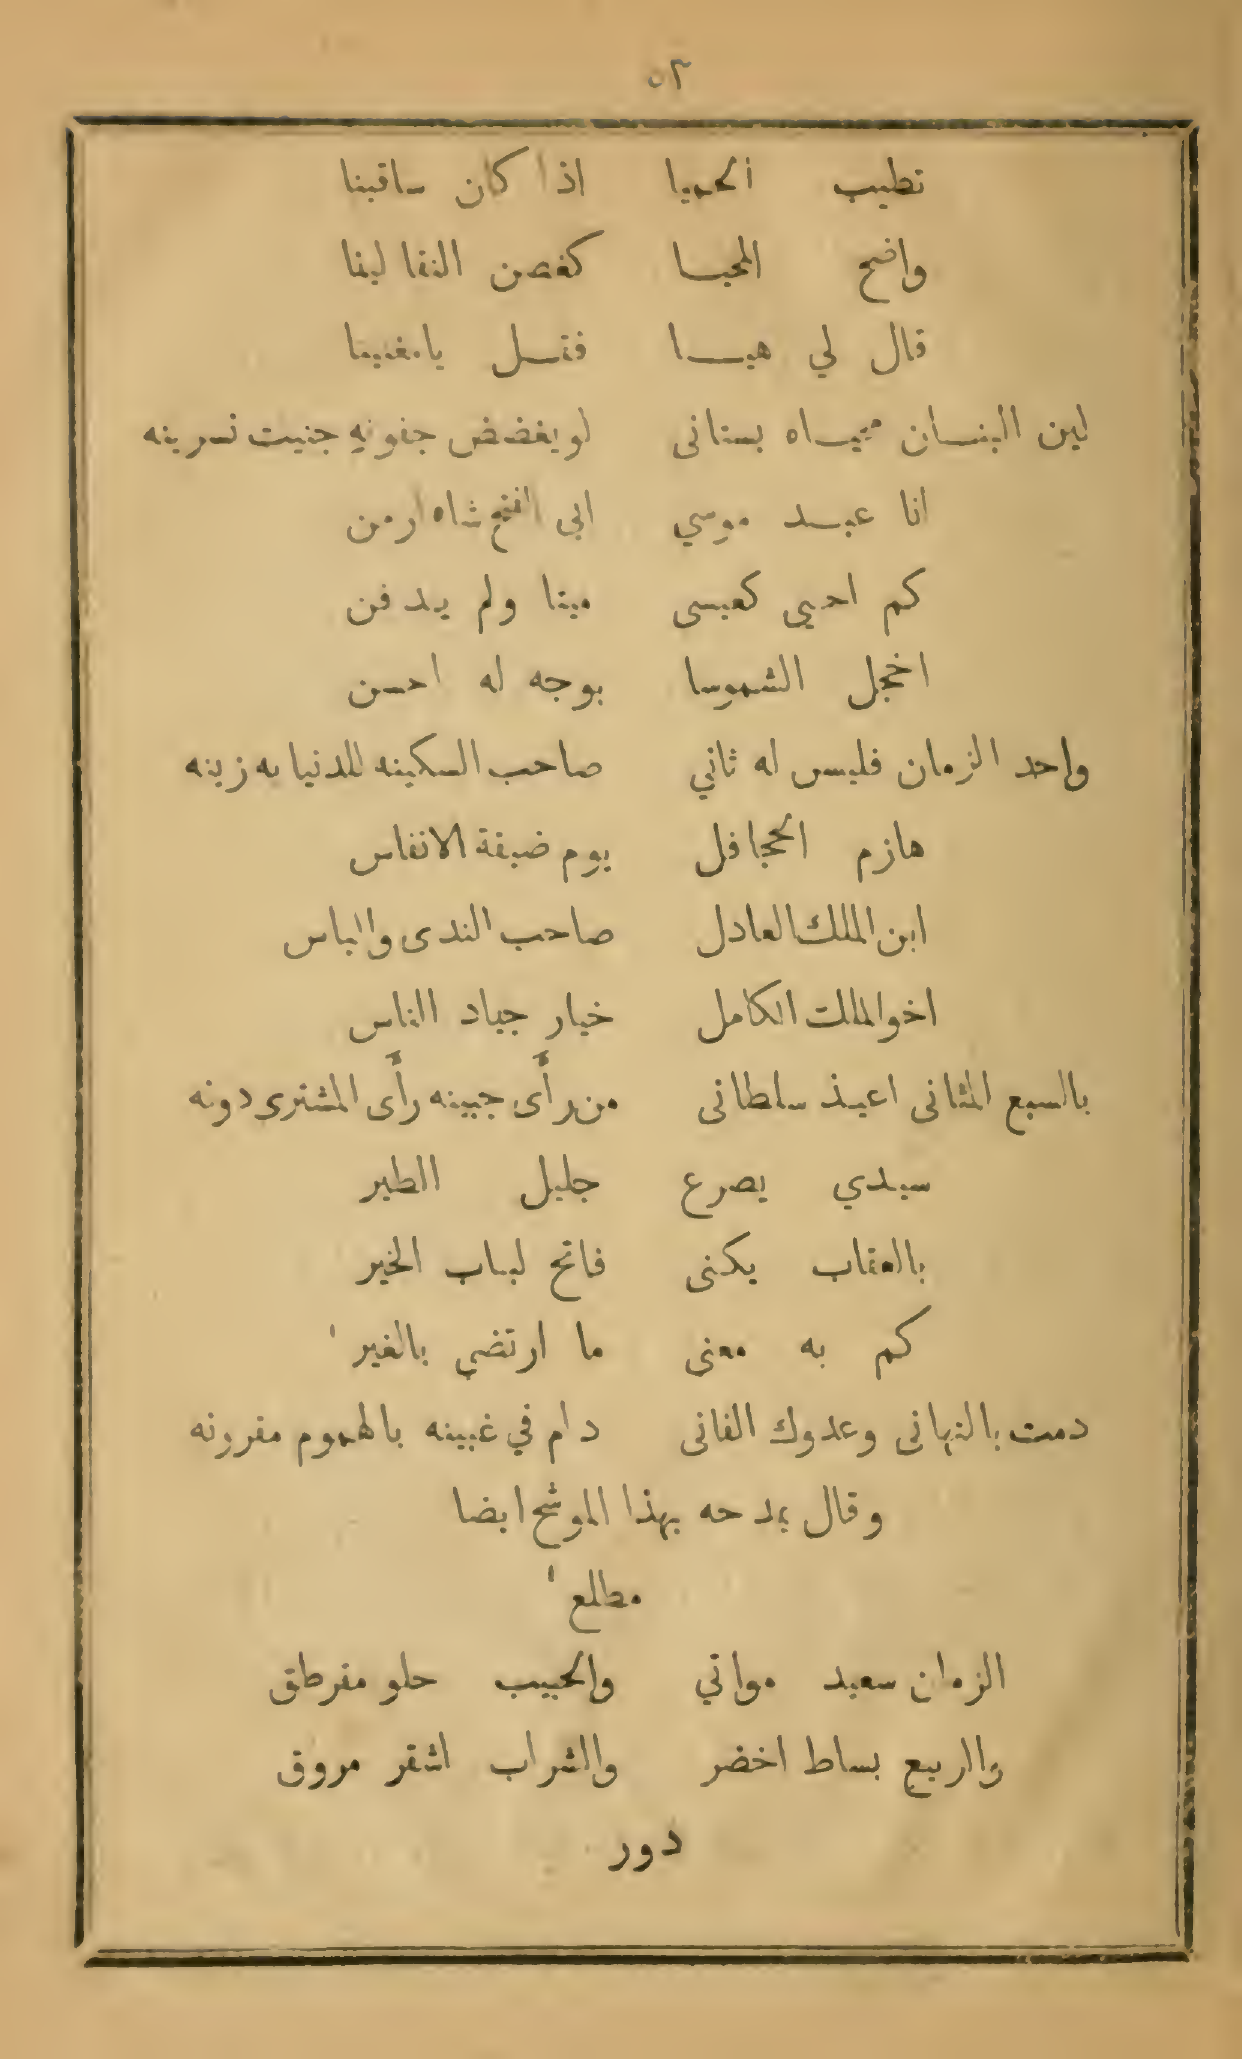 ٥٣
تطيب الحميا اذا كان ساقينا
واضح المحيا كغصن النقا لينا
قال لي هيا فقل يا مغنينا
لين البنان مياه بستانى لو يغضض جفونه جنيت نسرينه
انا عبد موسي ابى الفتح شاه ارمن
كم احيى كعيسى ميتا ولم يدفن
اخجل الشموسا بوجه له احسن
واحد الزمان فليس له ثاني صاحب السكينه للدنيا به زينه
هازم الجحافل يوم ضيقة الانفاس
ابن الملك العادل صاحب الندى والباس
اخو الملك الكامل خيار جياد الناس
بالسبع المثانى اعيذ سلطانى من رأى جبينه رأى المشترى دونه
سيدي يصرع جليل الطير
بالعقاب يكنى فاتح لباب الخير
كم به معنى ما ارتضى بالغير
دمت بالتهانى وعدوك الفانى دام في غبينه بالهموم مقرونه
وقال يمدحه بهذا الموشح ايضا
مطلع
الزمان سعيد مواتي والحبيب حلو مقرطق
والربيع بساط اخضر والشراب اشقر مروق
دور